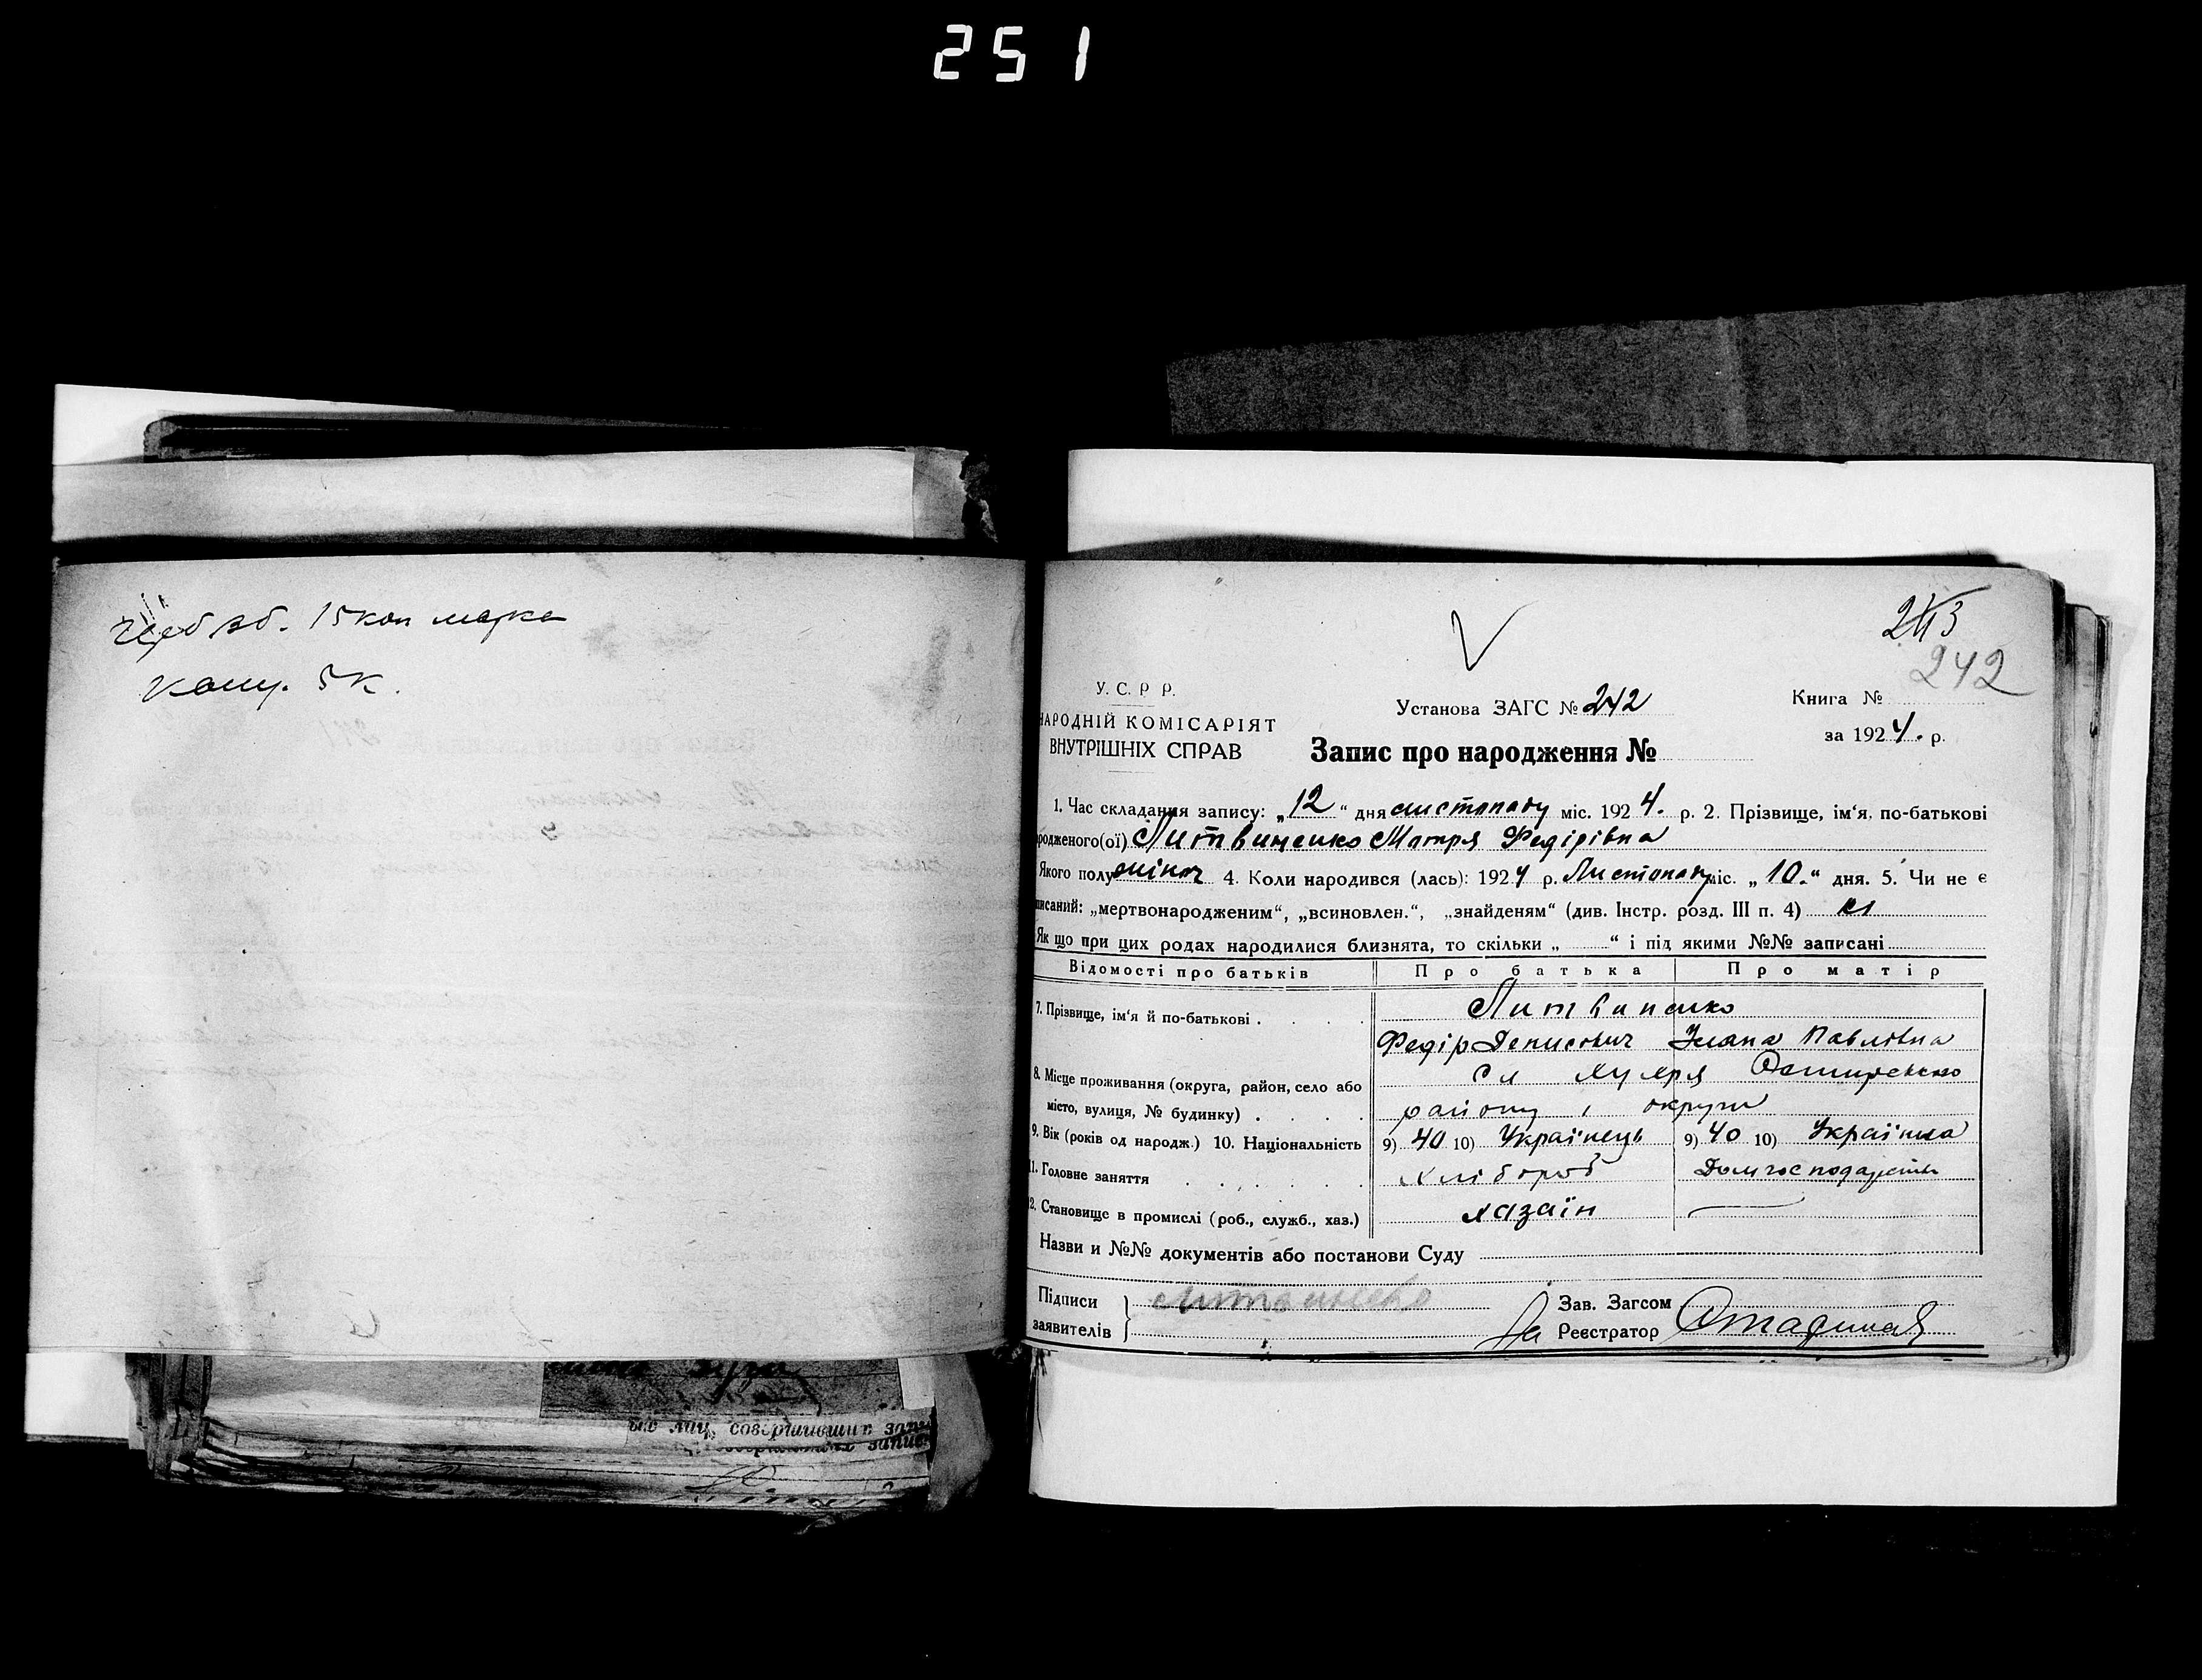 251
зб. 15 коп марка
5 к.
242
У. С. Р. Р.
НАРОДНІЙ КОМІСАРІЯТ
ВНУТРІШНІХ СПРАВ
Установа ЗАГС № 242
Книга №
за 1924. р.
Запис про народження №
1. Час складання запису: „12“ дня листопаду міс. 1924. р. 2. Прізвище, ім'я, по-батькові
родженого(ої) Литвиненко Мотря Федірівна
Якого полу жіноч 4. Коли народився (лась): 1924 р. Листопаду міс. „10.“ дня. 5. Чи не є
писаний: „мертвонародженим“, „всиновлен.“, „знайденям“ (див. Інстр. розд. III п. 4) ні
Як що при цих родах народилися близнята, то скільки „ “ і під якими №№ записані
Відомості про батьків Про батька Про матір
7. Прізвище, ім'я й по-батькові . . . . Литвиненко
Федір Денисович Уляна Павлівна
8. Місце проживання (округа, район, село або сл Хухря Охтирсько
місто, вулиця, № будинку) . . . . району і округи
9. Вік (років од народж.) 10. Національність 9) 40 10) Українець 9) 40 10) Українка
11. Головне заняття . . . . . . Хлібороб Домгосподарство
12. Становище в промислі (роб., служб., хаз.) хазаїн —
Назви и №№ документів або постанови Суду
Підписи Литвиненко Зав. Загсом
заявителів За Реєстратор
лиц, совершивших запи